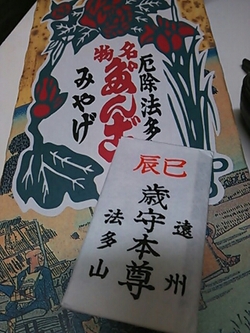 厄除法多
名物
だんご
みやげ
辰巳
遠州
歳守本尊
法多山